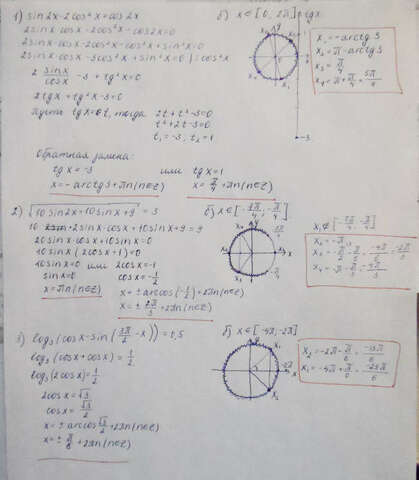 1) sin2x-2cos²x=cos2x
2sinx cosx-2cos²x-cos2x=0
2sinx cosx-2cos²x-cos²x+sin²x=0
2sinx cosx-3cos²x+sin²x=0 | : cos²x
2 sinx/cosx -3 + tg²x=0
2tgx+tg²x-3=0
Пусть tgx=t, тогда 2t+t²-3=0
t²+2t-3=0
t₁=-3; t₂=1
Обратная замена:
tgx=-3 или tgx=1
x=-arctg3+πn(n∈Z) x=π/4+πn(n∈Z)
б) x∈[0; 2π]
tgx
x₁=-arctg3
x₂=π-arctg3
x₃=π/4
x₄=π+π/4=5π/4
-3
2) √(10sin2x+10sinx+9) = 3
10·2sinx·cosx+10sinx+9=9
20sinx·cosx+10sinx=0
10sinx(2cosx+1)=0
10sinx=0 или 2cosx=-1
sinx=0 cosx=-1/2
x=πn(n∈Z) x=±arccos(-1/2)+2πn(n∈Z)
x=±2π/3+2πn(n∈Z)
3) log₃(cosx-sin(3π/2-x))=0,5
log₃(cosx+cosx)=1/2
log₃(2cosx)=1/2
2cosx=√3
cosx=√3/2
x=±arccos√3/2+2πn(n∈Z)
x=±π/6+2πn(n∈Z)
б) x∈[-4π;-2π]
x₂=-2π-π/6=-13π/6